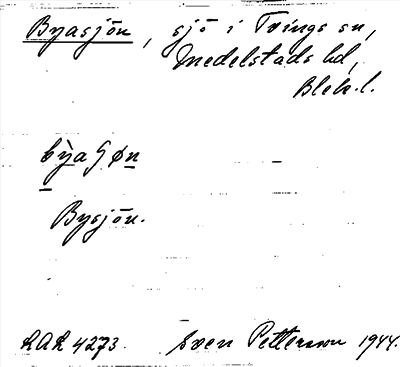 Byasjön, sjö i Tvings sn,
Medelstads hd,
Blek. l.
Bysjön.
LAL 4273. Sven Petterson 1944.